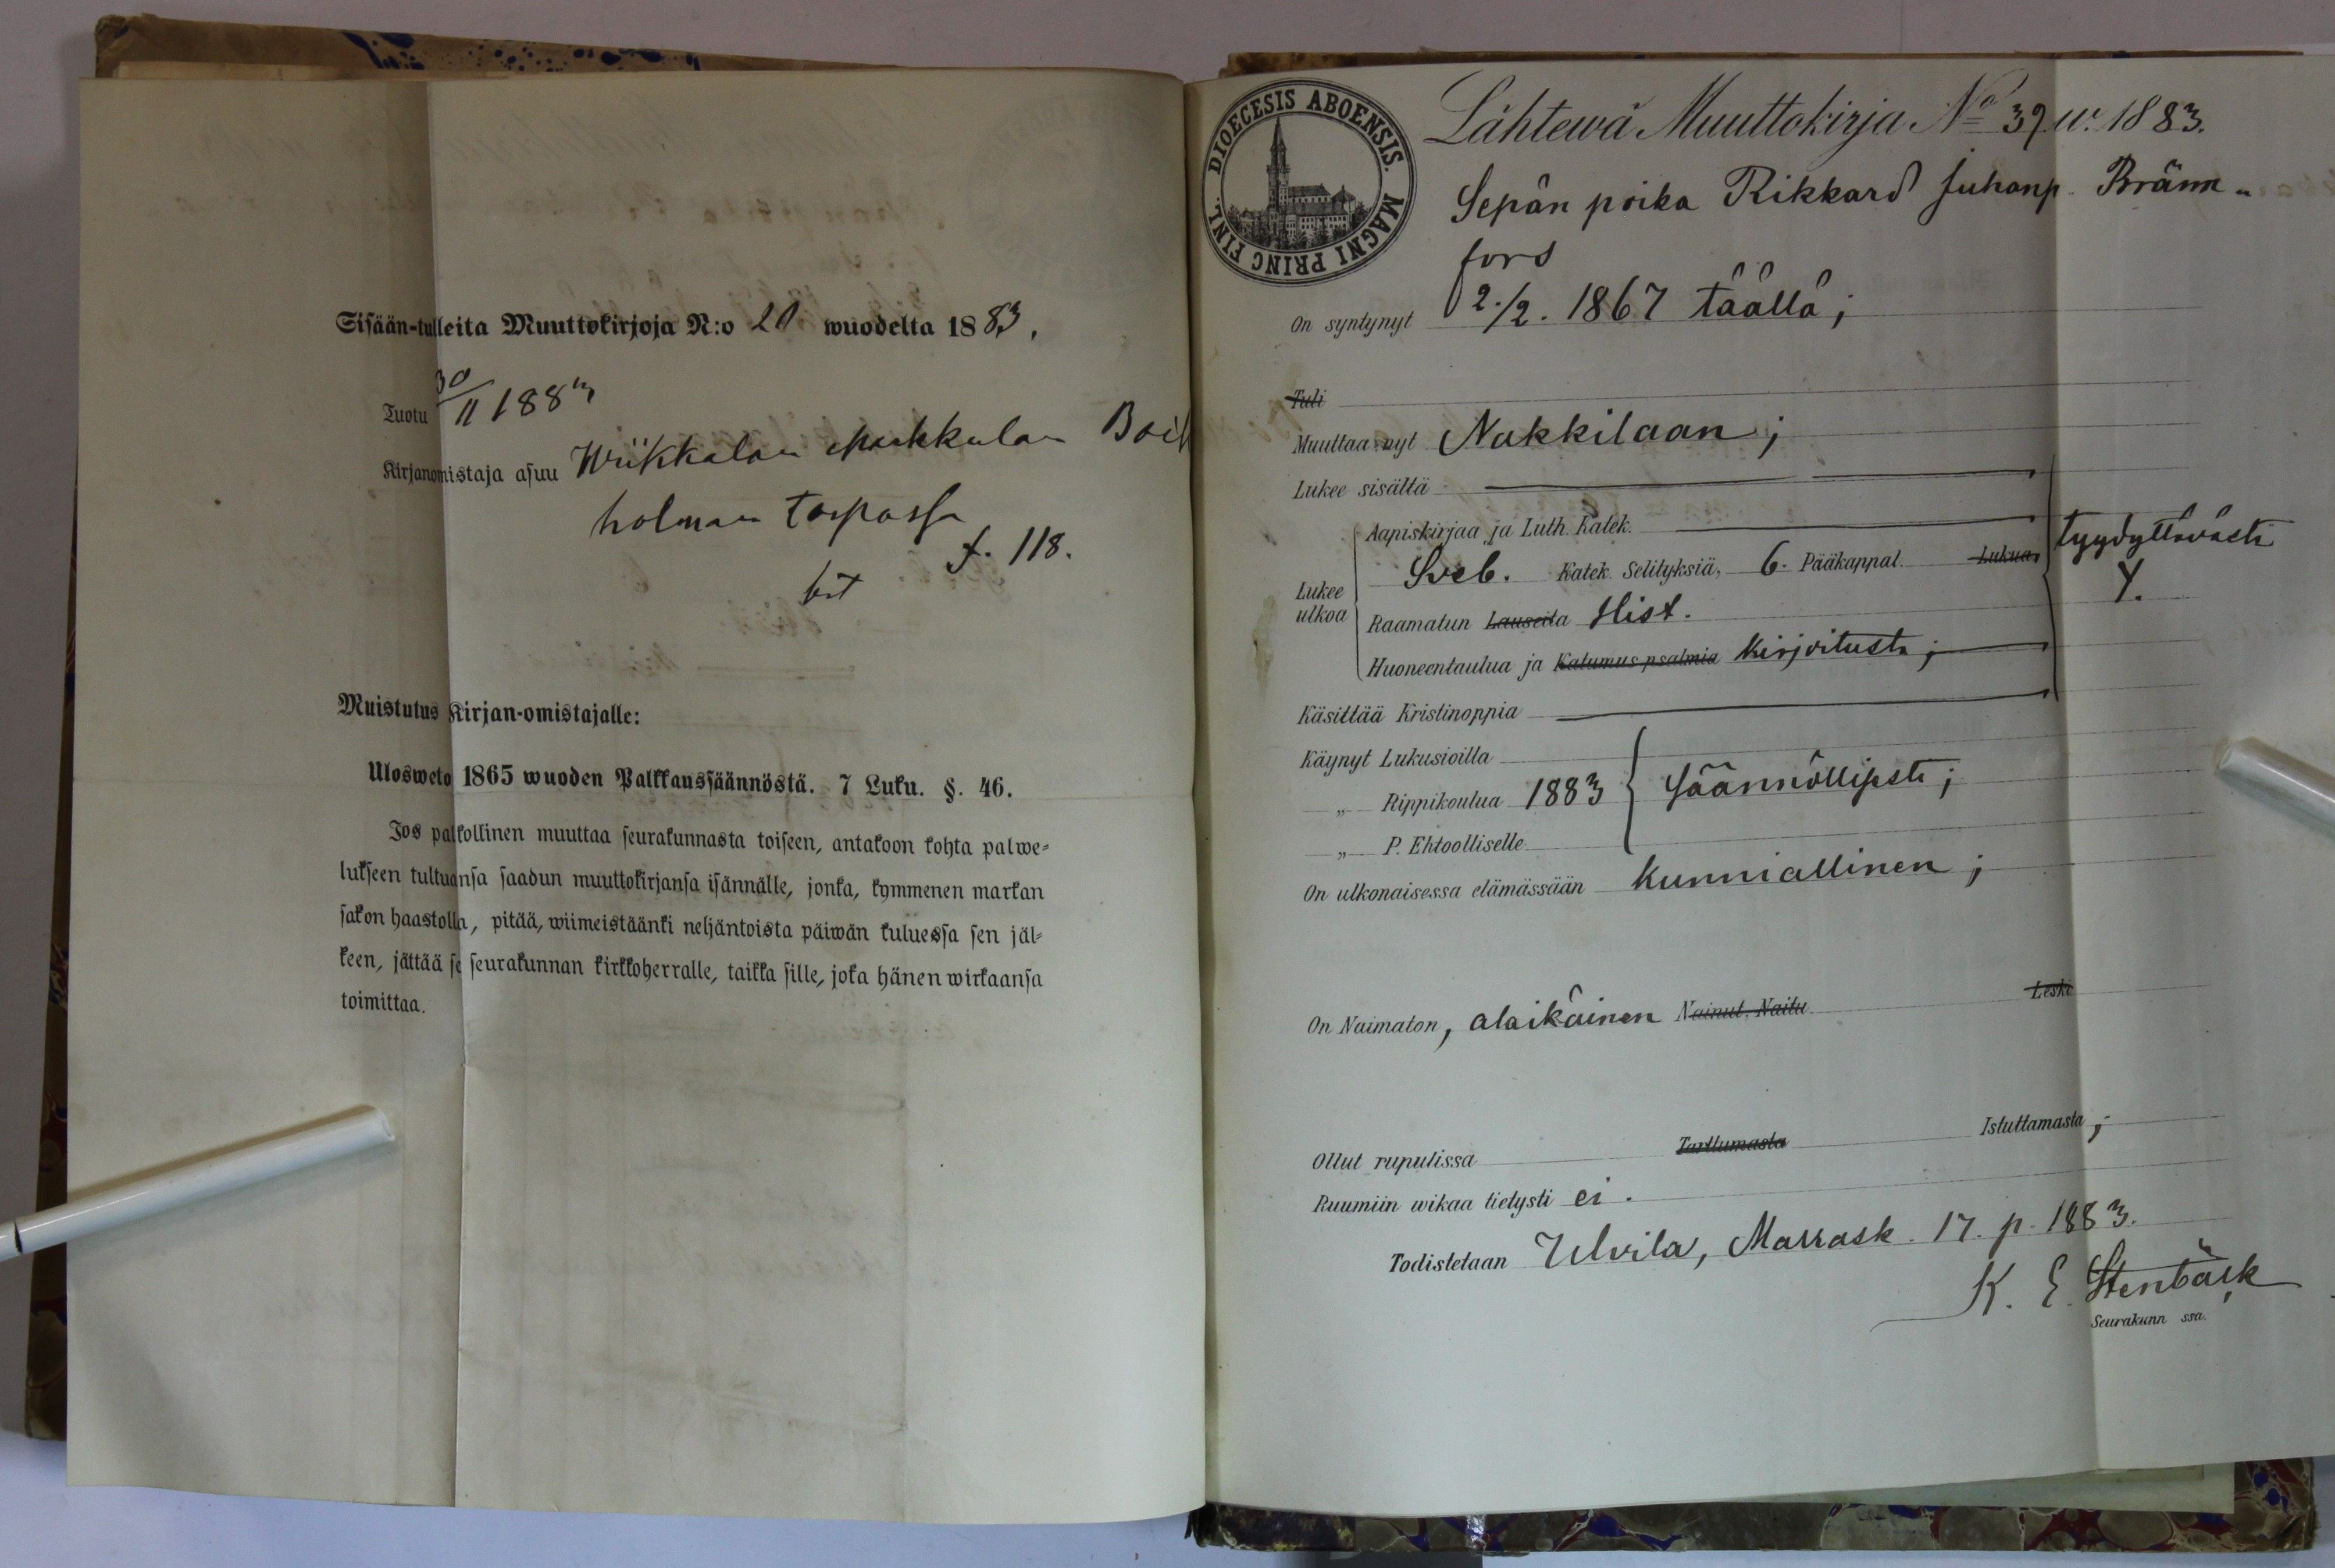 Sisään-tulleita Muuttokirjoja N:o 20 wuodelta 1883.
Tuotu 30/11 1883
Kirjanomistaja asuu Wiikkalan
holman torpassa
f. 118.
Muistutus Kirjan-omistajalle:
Ulosweto 1865 wuoden Palkkaussäännöstä. 7 Luku. §. 46.
Jos palkollinen muuttaa seurakunnasta toiseen, antakoon kohta palwe-
lukseen tultuansa saadun muuttokirjansa isännälle, jonka, kymmenen markan
sakon haastolla, pitää, wiimeistäänki neljäntoista päiwän kuluessa sen jäl-
keen, jättää se seurakunnan kirkkoherralle, taikka sille, joka hänen wirkaansa
toimittaa.
DIOECESIS ABOENSIS. MAGNI PRINC FINL.
Lähtewä Muuttokirja No 39 w. 1883.
Sepän poika Rikkard Juhanp. Bränn-
fors
On syntynyt 2./2. 1867 täällä;
Tuli
Muuttaa nyt Nakkilaan;
Lukee sisältä
Aapiskirjaa ja Luth. Katek.
tyydyttäväSti
Lukee ulkoa
Sveb. Katek. Selityksiä, 6. Pääkappal. Lukua
Y.
Raamatun Lauseita Hist.
Huoneentaulua ja Katumus psalmia Kirjoitusta;
Käsittää Kristinoppia
Käynyt Lukusioilla
„ Rippikoulua 1883 Säännöllisesti;
„ P. Ehtoolliselle
On ulkonaisessa elämässään Kunniallinen;
On Naimaton, alaikäinen Nainut. Naitu. Leski
Ollut rupulissa Tarttumasta Istuttamasta;
Ruumiin wikaa tietysti ei.
Todistetaan Ulvila, Marrask. 17. p. 1883.
K. E. Stenbäck
Seurakunn ssa.